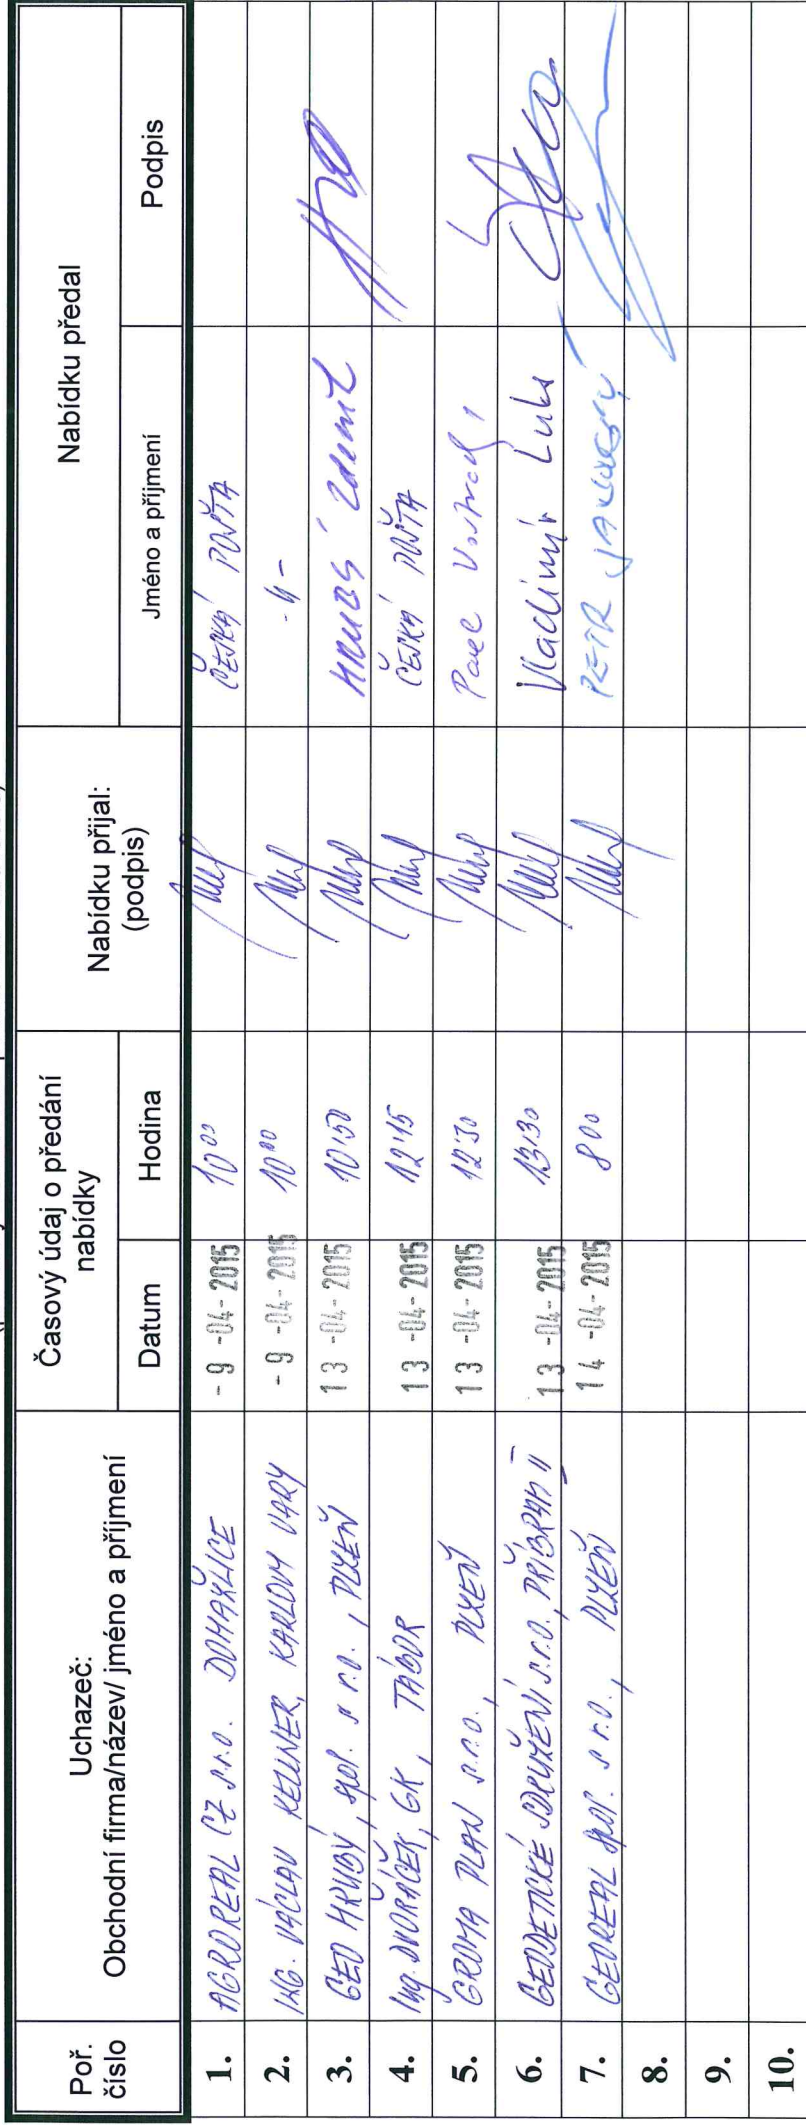 Poř. číslo
Uchazeč:
Obchodní firma/název/ jméno a příjmení
Časový údaj o předání nabídky
Datum
Hodina
Nabídku přijal:
(podpis)
Nabídku předal
Jméno a příjmení
Podpis
1. AGROREAL CZ s.r.o. DOMAŽLICE - 9 -04- 2015 10 00 ČESKÁ POŠTA
2. ING. VÁCLAV KELLNER, KARLOVY VARY - 9 -04- 2015 10 00 -"-
3. GEO HRUBÝ, spol. s r.o., PLZEŇ 13 -04- 2015 10:50 HRUBÝ Zdeněk
4. Ing. DVOŘÁČEK, GK, TÁBOR 13 -04- 2015 12:15 ČESKÁ POŠTA
5. GROMA PLAN s.r.o., PLZEŇ 13 -04- 2015 12:30 Pavel
6. GEODETICKÉ SDRUŽENÍ s.r.o., PŘÍBRAM II 13 -04- 2015 13:30 Vladimír
7. GEOREAL spol. s r.o., PLZEŇ 14 -04- 2015 8 00 PETR
8.
9.
10.